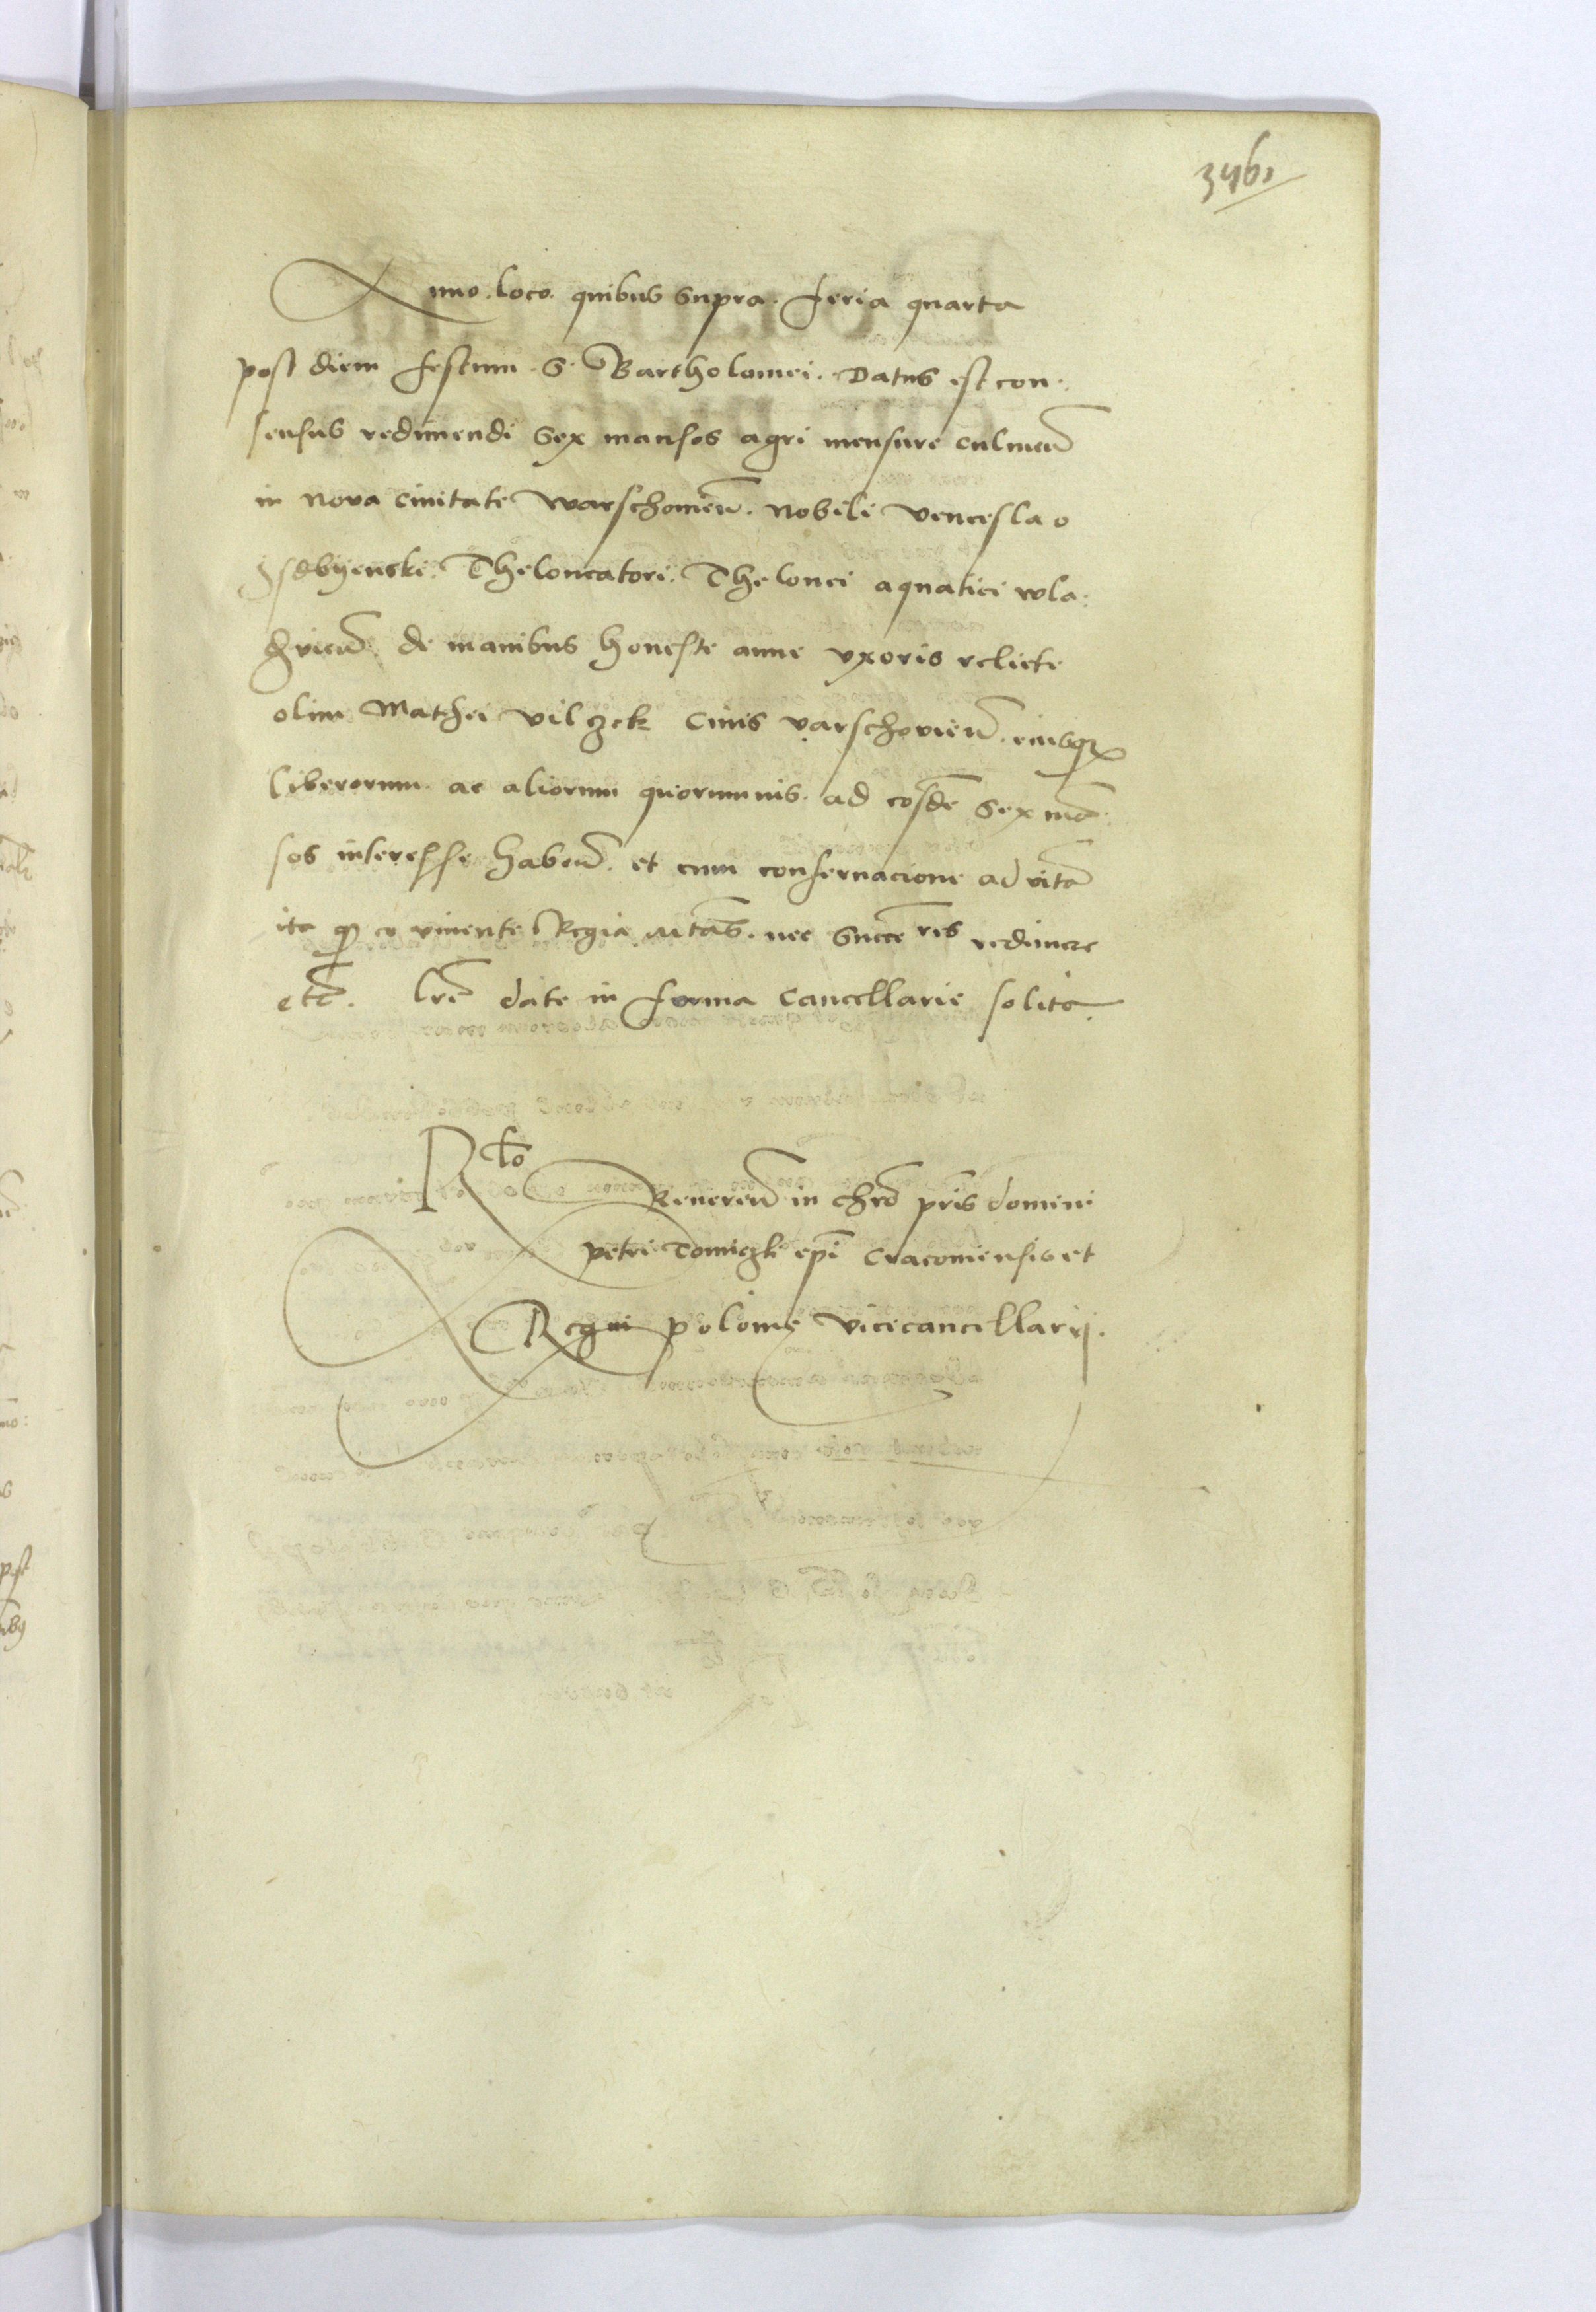 Anno. loco. quibus supra. feria quarta
post diem festum. S. Bartholomei. Datus est con:
sensus redimendi sex mansos agri mensure culmen̄
in Nova civitate Warschovien̄. Nobili venceslao
Theloneatori. Thelonei aquatici wla:
de manibus honeste anne vxoris relicte
olim Mathei vilczek civis varschovien̄. eiusq̃
liberorum. ac aliorum quorumuis. ad eosdē sex mā:
sos interesse haben̄. et cum conservacione ad vitā
ita q̃ eo vivente Regia Mtās. nec succēres redimere
etc̄. Lrē date in forma Cancellarie solita.
Rlō
Reveren̄ in chrō pris domini
petri Tomiczki epī cracoviensis et
Regni polonie vicecancellarij.